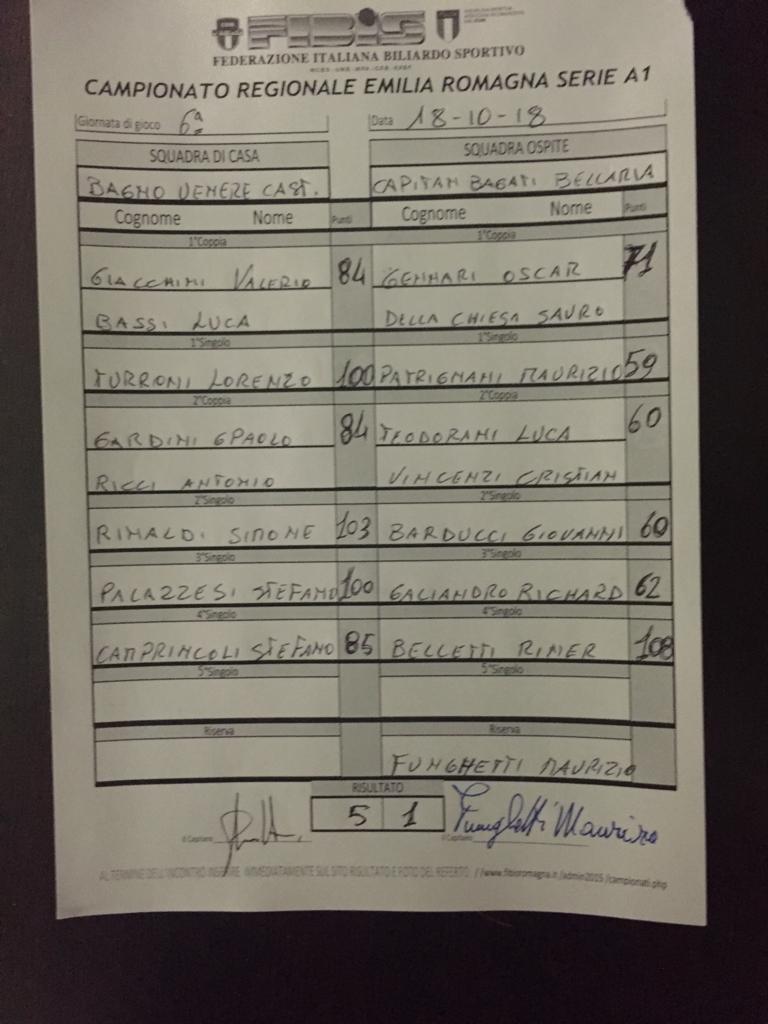 FIBIS
FEDERAZIONE ITALIANA BILIARDO SPORTIVO
CAMPIONATO REGIONALE EMILIA ROMAGNA SERIE A1
Giornata di gioco 6ª Data 18-10-18
SQUADRA DI CASA SQUADRA OSPITE
BAGNO VENERE CAST. CAPITAN BAGATI BELLARIA
Cognome Nome Punti Cognome Nome Punti
1°Coppia 1°Coppia
GIACCHINI VALERIO 84 GENNARI OSCAR 71
BASSI LUCA DELLA CHIESA SAURO
1°Singolo 1°Singolo
TURRONI LORENZO 100 PATRIGNANI MAURIZIO 59
2°Coppia 2°Coppia
GARDINI GPAOLO 84 TEODORANI LUCA 60
RICCI ANTONIO VINCENZI CRISTIAN
2°Singolo 2°Singolo
RINALDI SIMONE 103 BARDUCCI GIOVANNI 60
3°Singolo 3°Singolo
PALAZZESI STEFANO 100 GALIANDRO RICHARD 62
4°Singolo 4°Singolo
CAMPRINCOLI STEFANO 85 BELLETTI RINER 108
5°Singolo 5°Singolo
Riserva Riserva
FUNGHETTI MAURIZIO
RISULTATO
5 1
Il Capitano Il Capitano Funghetti Maurizio
AL TERMINE DELL'INCONTRO INSERIRE IMMEDIATAMENTE SUL SITO RISULTATO E FOTO DEL REFERTO //www.fibisromagna.it/admin2015/campionati.php